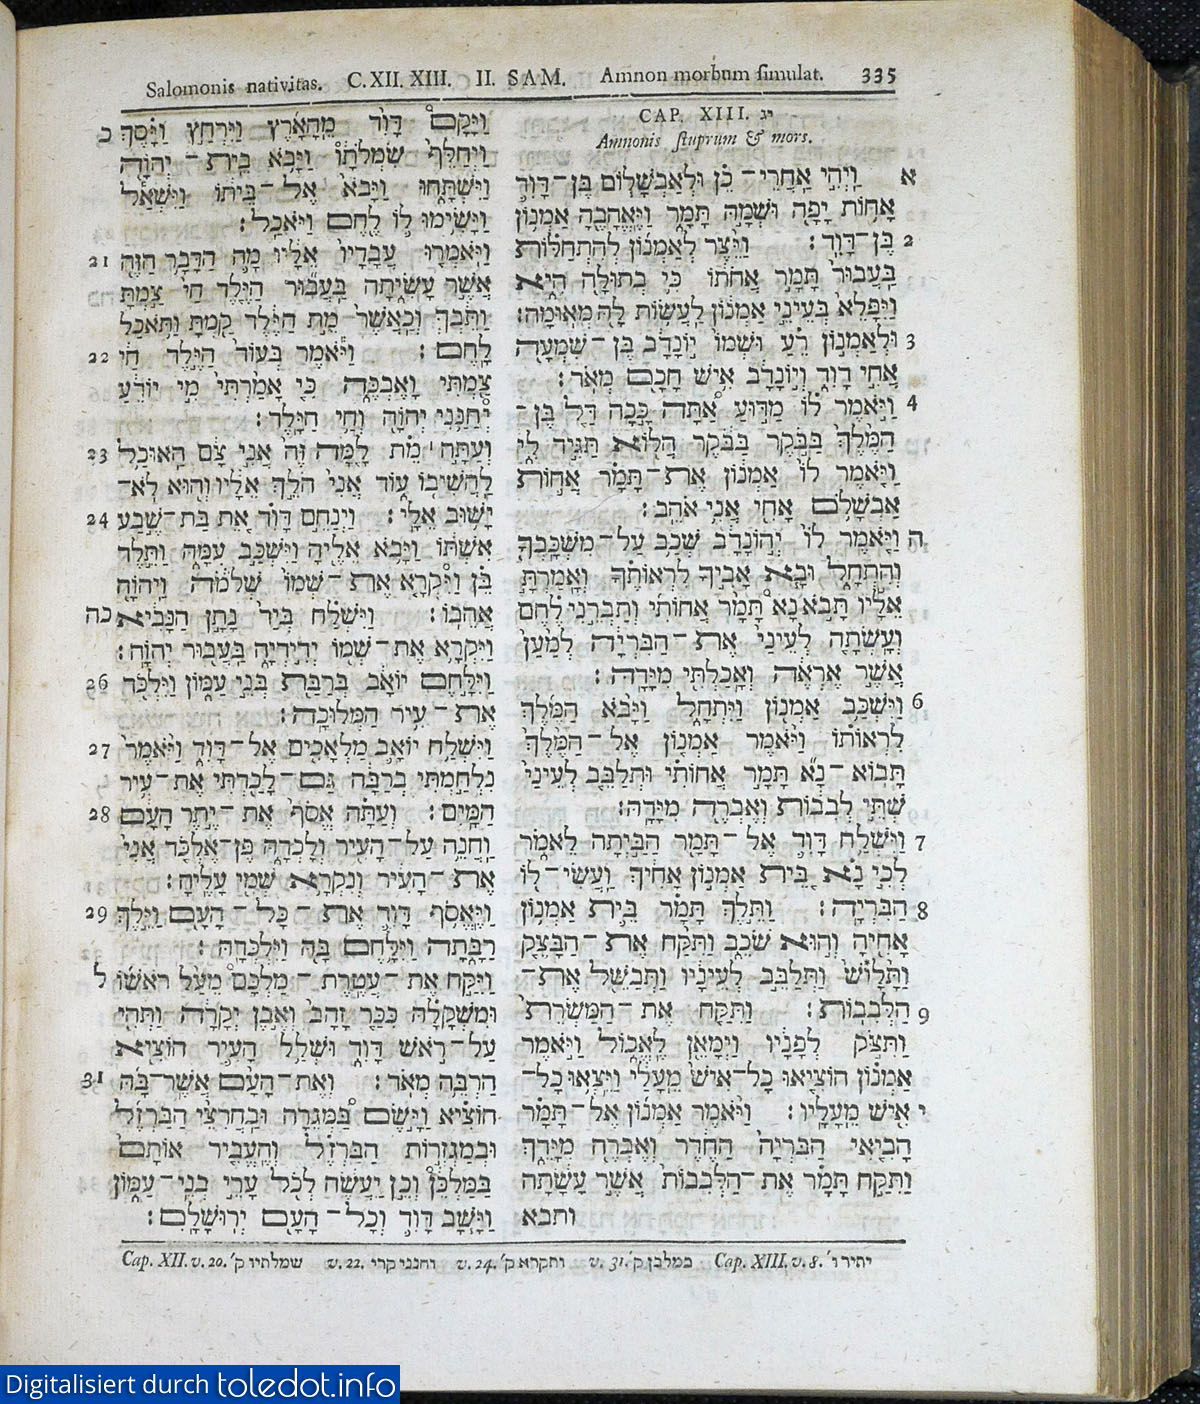 Salomonis nativitas. C. XII. XIII. II. SAM. Amnon morbum simulat. 335
כ וַיָּקָם דָּוִד מֵהָאָרֶץ וַיִּרְחַץ וַיָּסֶךְ
וַיְחַלֵּף שִׂמְלֹתָו וַיָּבֹא בֵית־יְהוָה
וַיִּשְׁתָּחוּ וַיָּבֹא אֶל־בֵּיתוֹ וַיִּשְׁאַל
וַיָּשִׂימוּ לוֹ לֶחֶם וַיֹּאכַל׃
21 וַיֹּאמְרוּ עֲבָדָיו אֵלָיו מָה הַדָּבָר הַזֶּה
אֲשֶׁר עָשִׂיתָה בַּעֲבוּר הַיֶּלֶד חַי צַמְתָּ
וַתֵּבְךְּ וְכַאֲשֶׁר מֵת הַיֶּלֶד קַמְתָּ וַתֹּאכַל
22 לָחֶם׃ וַיֹּאמֶר בְּעוֹד הַיֶּלֶד חַי
צַמְתִּי וָאֶבְכֶּה כִּי אָמַרְתִּי מִי יוֹדֵעַ
יְחַנַּנִי יְהוָה וְחַי הַיָּלֶד׃
23 וְעַתָּה ׀ מֵת לָמָּה זֶּה אֲנִי צָם הַאוּכַל
לַהֲשִׁיבוֹ עוֹד אֲנִי הֹלֵךְ אֵלָיו וְהוּא לֹא־
24 יָשׁוּב אֵלָי׃ וַיְנַחֵם דָּוִד אֵת בַּת־שֶׁבַע
אִשְׁתּוֹ וַיָּבֹא אֵלֶיהָ וַיִּשְׁכַּב עִמָּהּ וַתֵּלֶד
בֵּן וַיִּקְרָא אֶת־שְׁמוֹ שְׁלֹמֹה וַיהוָה
כה אֲהֵבוֹ׃ וַיִּשְׁלַח בְּיַד נָתָן הַנָּבִיא
וַיִּקְרָא אֶת־שְׁמוֹ יְדִידְיָהּ בַּעֲבוּר יְהוָה׃
26 וַיִּלָּחֶם יוֹאָב בְּרַבַּת בְּנֵי עַמּוֹן וַיִּלְכֹּד
אֶת־עִיר הַמְּלוּכָה׃
27 וַיִּשְׁלַח יוֹאָב מַלְאָכִים אֶל־דָּוִד וַיֹּאמֶר
נִלְחַמְתִּי בְרַבָּה גַּם־לָכַדְתִּי אֶת־עִיר
28 הַמָּיִם׃ וְעַתָּה אֱסֹף אֶת־יֶתֶר הָעָם
וַחֲנֵה עַל־הָעִיר וְלָכְדָהּ פֶּן־אֶלְכֹּד אֲנִי
אֶת־הָעִיר וְנִקְרָא שְׁמִי עָלֶיהָ׃
29 וַיֶּאֱסֹף דָּוִד אֶת־כָּל־הָעָם וַיֵּלֶךְ
רַבָּתָה וַיִּלָּחֶם בָּהּ וַיִּלְכְּדָהּ׃
ל וַיִּקַּח אֶת־עֲטֶרֶת־מַלְכָּם מֵעַל רֹאשׁוֹ
וּמִשְׁקָלָהּ כִּכַּר זָהָב וְאֶבֶן יְקָרָה וַתְּהִי
עַל־רֹאשׁ דָּוִד וּשְׁלַל הָעִיר הוֹצִיא
31 הַרְבֵּה מְאֹד׃ וְאֶת־הָעָם אֲשֶׁר־בָּהּ
הוֹצִיא וַיָּשֶׂם בַּמְּגֵרָה וּבַחֲרִצֵי הַבַּרְזֶל
וּבְמַגְזְרוֹת הַבַּרְזֶל וְהֶעֱבִיר אוֹתָם
בַּמַּלְכֵּן וְכֵן יַעֲשֶׂה לְכֹל עָרֵי בְנֵי־עַמּוֹן
וַיָּשָׁב דָּוִד וְכָל־הָעָם יְרוּשָׁלָםִ׃
CAP. XIII. יג
Amnonis stuprum & mors.
א וַיְהִי אַחֲרֵי־כֵן וּלְאַבְשָׁלוֹם בֶּן־דָּוִד
אָחוֹת יָפָה וּשְׁמָהּ תָּמָר וַיֶּאֱהָבֶהָ אַמְנוֹן
2 בֶּן־דָּוִד׃ וַיֵּצֶר לְאַמְנוֹן לְהִתְחַלּוֹת
בַּעֲבוּר תָּמָר אֲחֹתוֹ כִּי בְתוּלָה הִיא
וַיִּפָּלֵא בְּעֵינֵי אַמְנוֹן לַעֲשׂוֹת לָהּ מְאוּמָה׃
3 וּלְאַמְנוֹן רֵעַ וּשְׁמוֹ יוֹנָדָב בֶּן־שִׁמְעָה
אֲחִי דָוִד וְיוֹנָדָב אִישׁ חָכָם מְאֹד׃
4 וַיֹּאמֶר לוֹ מַדּוּעַ אַתָּה כָּכָה דַּל בֶּן־
הַמֶּלֶךְ בַּבֹּקֶר בַּבֹּקֶר הֲלוֹא תַּגִּיד לִי
וַיֹּאמֶר לוֹ אַמְנוֹן אֶת־תָּמָר אֲחוֹת
אַבְשָׁלֹם אָחִי אֲנִי אֹהֵב׃
ה וַיֹּאמֶר לוֹ יְהוֹנָדָב שְׁכַב עַל־מִשְׁכָּבְךָ
וְהִתְחָל וּבָא אָבִיךָ לִרְאוֹתֶךָ וְאָמַרְתָּ
אֵלָיו תָּבֹא נָא תָמָר אֲחוֹתִי וְתַבְרֵנִי לֶחֶם
וְעָשְׂתָה לְעֵינַי אֶת־הַבִּרְיָה לְמַעַן
אֲשֶׁר אֶרְאֶה וְאָכַלְתִּי מִיָּדָהּ׃
6 וַיִּשְׁכַּב אַמְנוֹן וַיִּתְחָל וַיָּבֹא הַמֶּלֶךְ
לִרְאוֹתוֹ וַיֹּאמֶר אַמְנוֹן אֶל־הַמֶּלֶךְ
תָּבוֹא־נָא תָּמָר אֲחוֹתִי וּתְלַבֵּב לְעֵינַי
שְׁתֵּי לְבִבוֹת וְאֶבְרֶה מִיָּדָהּ׃
7 וַיִּשְׁלַח דָּוִד אֶל־תָּמָר הַבַּיְתָה לֵאמֹר
לְכִי נָא בֵּית אַמְנוֹן אָחִיךְ וַעֲשִׂי־לוֹ
8 הַבִּרְיָה׃ וַתֵּלֶךְ תָּמָר בֵּית אַמְנוֹן
אָחִיהָ וְהוּא שֹׁכֵב וַתִּקַּח אֶת־הַבָּצֵק
וַתָּלוֹשׁ וַתְּלַבֵּב לְעֵינָיו וַתְּבַשֵּׁל אֶת־
9 הַלְּבִבוֹת׃ וַתִּקַּח אֶת־הַמַּשְׂרֵת
וַתִּצֹק לְפָנָיו וַיְמָאֵן לֶאֱכוֹל וַיֹּאמֶר
אַמְנוֹן הוֹצִיאוּ כָל־אִישׁ מֵעָלַי וַיֵּצְאוּ כָל־
י אִישׁ מֵעָלָיו׃ וַיֹּאמֶר אַמְנוֹן אֶל־תָּמָר
הָבִיאִי הַבִּרְיָה הַחֶדֶר וְאֶבְרֶה מִיָּדֵךְ
וַתִּקַּח תָּמָר אֶת־הַלְּבִבוֹת אֲשֶׁר עָשָׂתָה
ותבא
Cap. XII. v. 20. שמלתיו ק׳ v. 22. וחנני קרי v. 24. ותקרא ק׳ v. 31. במלבן ק׳ Cap. XIII. v. 8. יתיר ו׳
Digitalisiert durch toledot.info